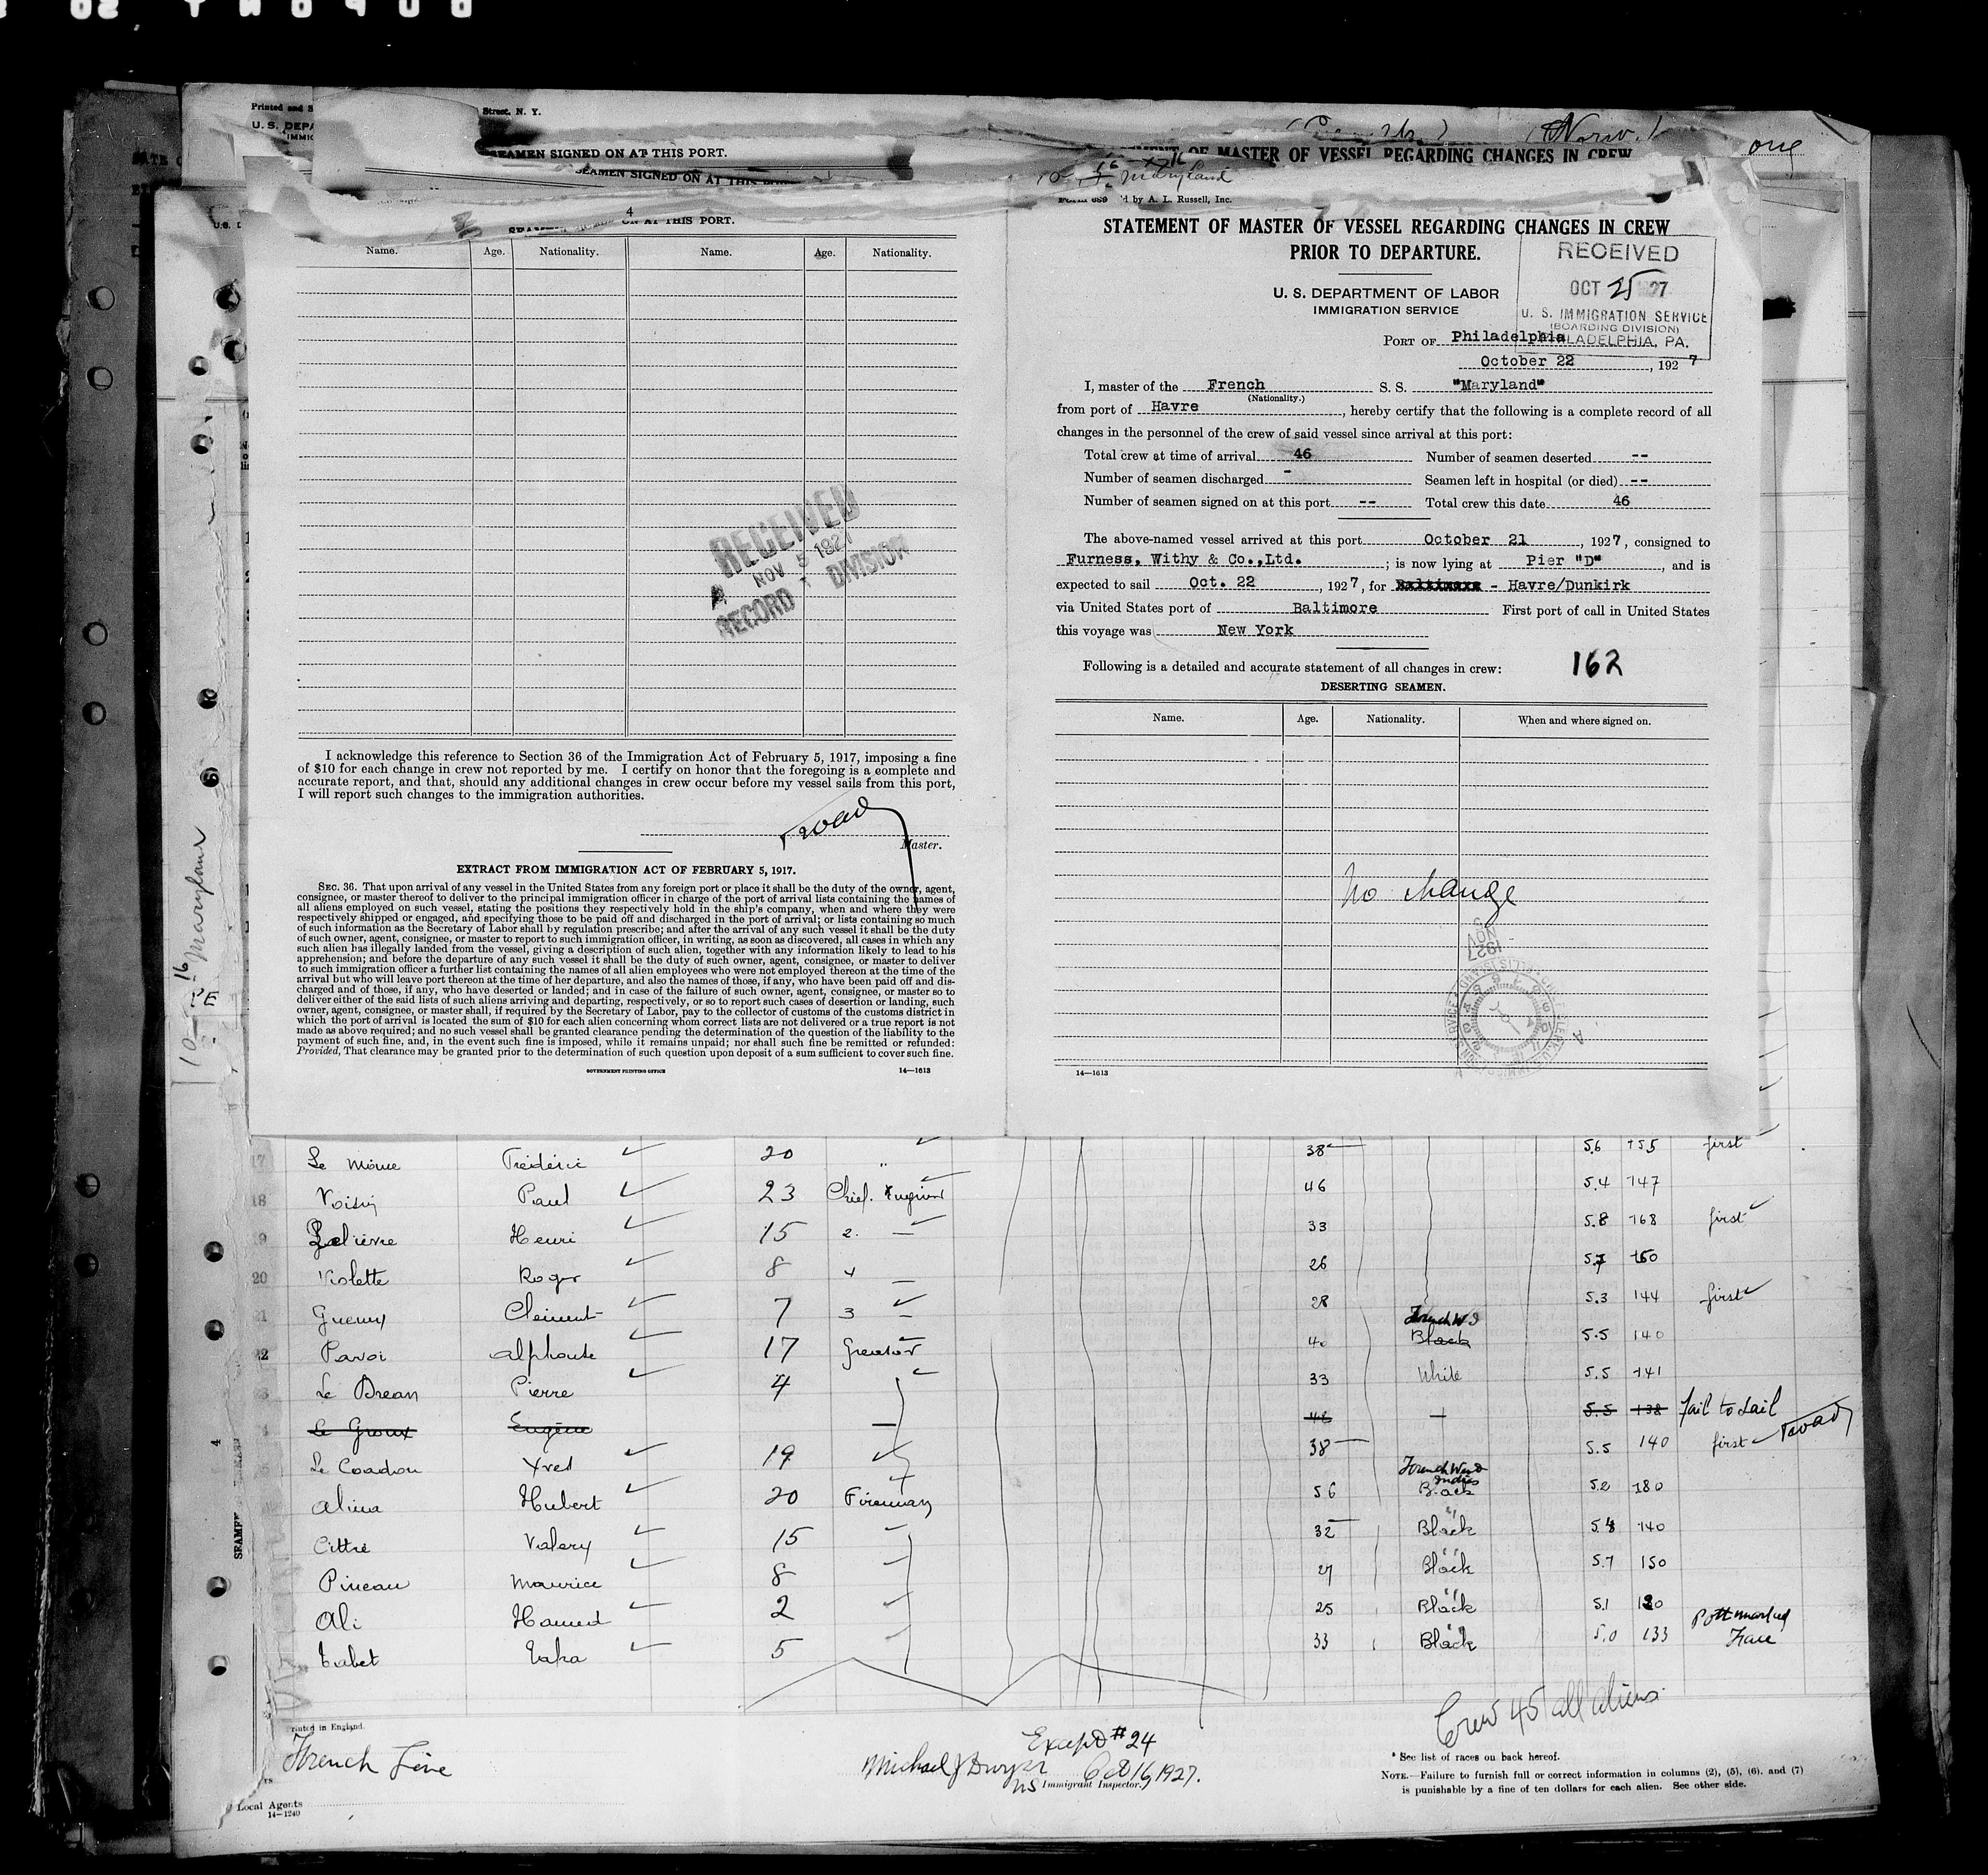 Printed and S
Street, N. Y.
U. S. DEPA
SEAMEN SIGNED ON AT THIS PORT.
OF MASTER OF VESSEL REGARDING CHANGES IN CREW
SEAMEN SIGNED ON AT THIS
Maryland
4
ON AT THIS PORT.
Name. Age. Nationality. Name. Age. Nationality.
RECEIVED
NOV 5 1927
RECORD DIVISION
I acknowledge this reference to Section 36 of the Immigration Act of February 5, 1917, imposing a fine
of $10 for each change in crew not reported by me. I certify on honor that the foregoing is a complete and
accurate report, and that, should any additional changes in crew occur before my vessel sails from this port,
I will report such changes to the immigration authorities.
Master.
EXTRACT FROM IMMIGRATION ACT OF FEBRUARY 5, 1917.
SEC. 36. That upon arrival of any vessel in the United States from any foreign port or place it shall be the duty of the owner, agent,
consignee, or master thereof to deliver to the principal immigration officer in charge of the port of arrival lists containing the names of
all aliens employed on such vessel, stating the positions they respectively hold in the ship's company, when and where they were
respectively shipped or engaged, and specifying those to be paid off and discharged in the port of arrival; or lists containing so much
of such information as the Secretary of Labor shall by regulation prescribe; and after the arrival of any such vessel it shall be the duty
of such owner, agent, consignee, or master to report to such immigration officer, in writing, as soon as discovered, all cases in which any
such alien has illegally landed from the vessel, giving a description of such alien, together with any information likely to lead to his
apprehension; and before the departure of any such vessel it shall be the duty of such owner, agent, consignee, or master to deliver
to such immigration officer a further list containing the names of all alien employees who were not employed thereon at the time of the
arrival but who will leave port thereon at the time of her departure, and also the names of those, if any, who have been paid off and dis-
charged and of those, if any, who have deserted or landed; and in case of the failure of such owner, agent, consignee, or master so to
deliver either of the said lists of such aliens arriving and departing, respectively, or so to report such cases of desertion or landing, such
owner, agent, consignee, or master shall, if required by the Secretary of Labor, pay to the collector of customs of the customs district in
which the port of arrival is located the sum of $10 for each alien concerning whom correct lists are not delivered or a true report is not
made as above required; and no such vessel shall be granted clearance pending the determination of the question of the liability to the
payment of such fine, and, in the event such fine is imposed, while it remains unpaid; nor shall such fine be remitted or refunded:
Provided, That clearance may be granted prior to the determination of such question upon deposit of a sum sufficient to cover such fine.
GOVERNMENT PRINTING OFFICE 14—1613
d by A. L. Russell, Inc.
STATEMENT OF MASTER OF VESSEL REGARDING CHANGES IN CREW
PRIOR TO DEPARTURE.
RECEIVED
OCT 25 27
U. S. IMMIGRATION SERVICE
(BOARDING DIVISION)
PHILADELPHIA, PA.
U. S. DEPARTMENT OF LABOR
IMMIGRATION SERVICE
PORT OF Philadelphia
October 22, 1927
I, master of the French S. S. "Maryland"
(Nationality.)
from port of Havre, hereby certify that the following is a complete record of all
changes in the personnel of the crew of said vessel since arrival at this port:
Total crew at time of arrival 46 Number of seamen deserted --
Number of seamen discharged - Seamen left in hospital (or died) --
Number of seamen signed on at this port -- Total crew this date 46
The above-named vessel arrived at this port October 21, 1927, consigned to
Furness, Withy & Co.,Ltd. ; is now lying at Pier "D", and is
expected to sail Oct. 22, 1927, for Baltimore - Havre/Dunkirk
via United States port of Baltimore First port of call in United States
this voyage was New York
Following is a detailed and accurate statement of all changes in crew: 162
DESERTING SEAMEN.
Name. Age. Nationality. When and where signed on.
No change
NOV
1927
14—1613
10- 16 Maryland
17 Frédéric 20 " 38 5.6 155 first
18 Voisin Paul 23 Chief. Engineer 46 5.4 147
19 Lelièvre Henri 15 2. — 33 5.8 168 first
20 Violette Roger 8 — 26 5.7 150
21 Clement 7 3 — 28 5.3 144 first
French W.I
22 Alphonse 17 40 Black 5.5 140
Le Brean Pierre 4 33 White 5.5 141
Le Groux Eugène — 48 5.5 138 Fail to Sail
Le Coadou Yved 19 38 5.5 140 first
French West Indies
Alina Hubert 20 Fireman 56 Black 5.2 180
Cittré Valery 15 32 Black 5.8 140
Pineau Maurice 8 27 Black 5.7 150
Ali Hamed 2 25 Black 5.1 120
Tabet Taha 5 33 Black 5.0 133 Pott marked Face
Crew 45 all aliens.
Printed in England.
French Line
Except #24
Michael J Dwyer Oct 16, 1927.
Immigrant Inspector.
* See list of races on back hereof.
NOTE.—Failure to furnish full or correct information in columns (2), (5), (6), and (7)
is punishable by a fine of ten dollars for each alien. See other side.
Local Agents
14—1240